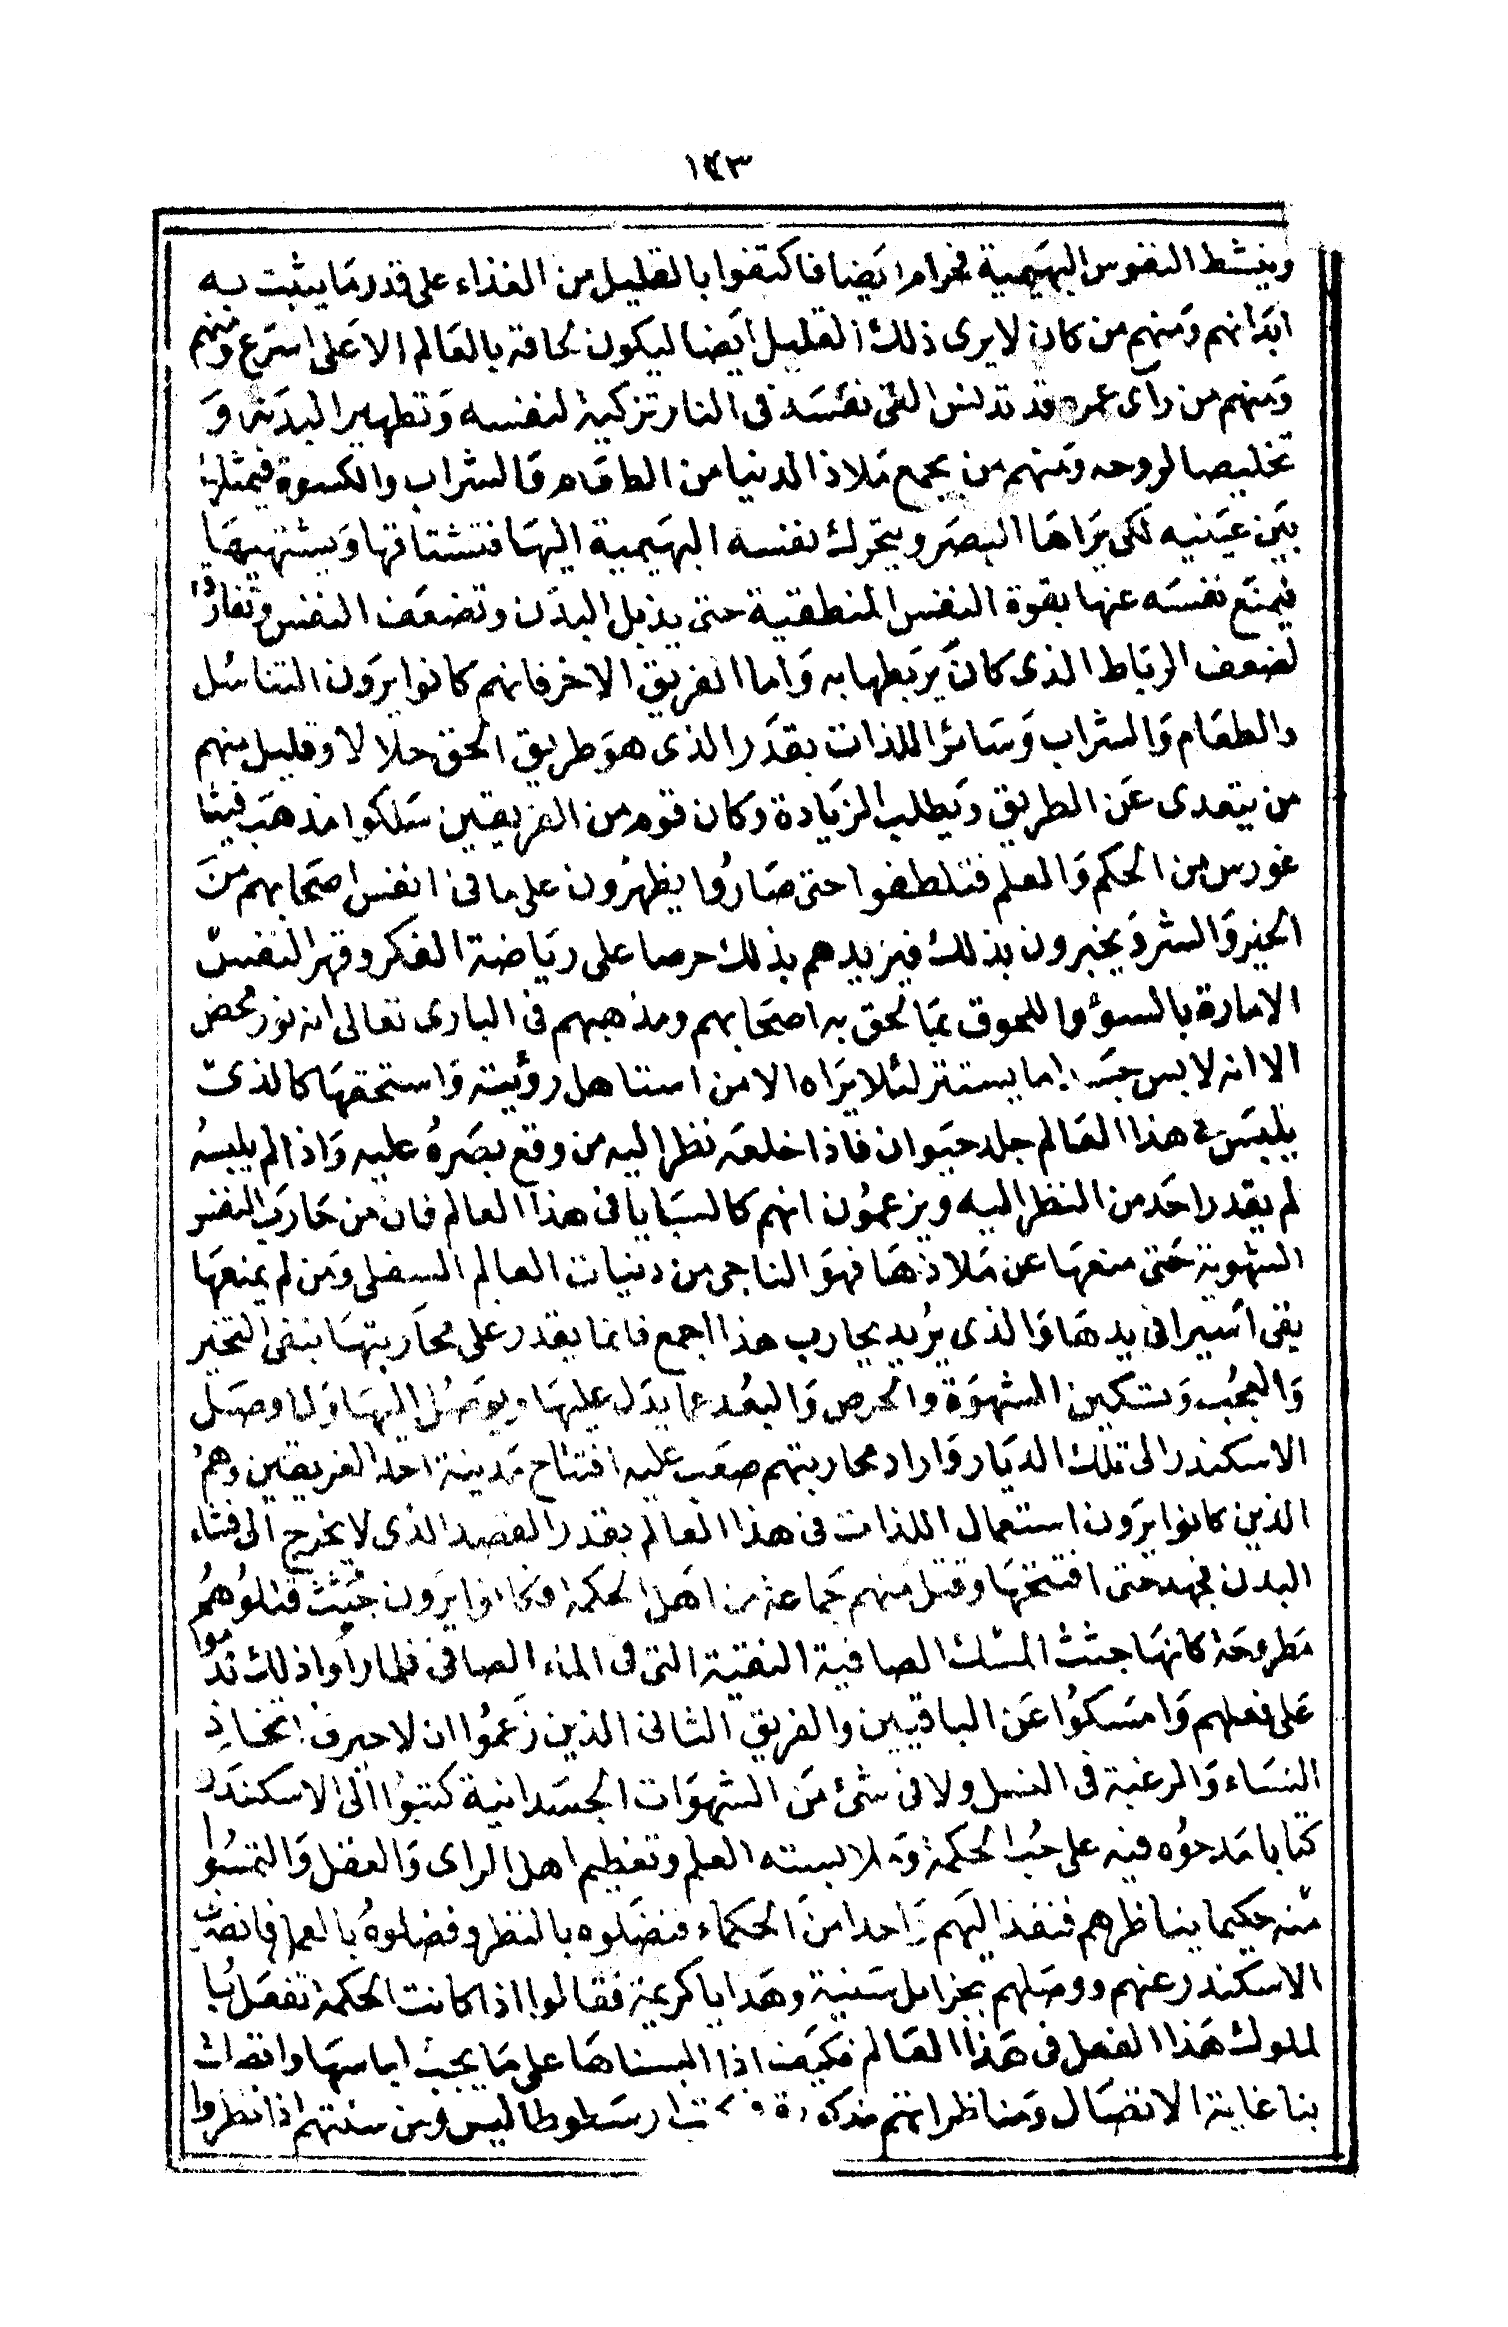 ١٤٣
وينشط النفوس البهيمية فحرام ايضا فاكتفوا بالقليل من الغذاء على قدر ما يثبت به
ابدانهم ومنهم من كان لا يرى ذلك القليل ايضا ليكون لحاقه بالعالم الاعلى اسرع ومنهم
ومنهم من راى عمره قد تدنس القى نفسه فى النار تزكية لنفسه وتطهيرا لبدنه و
تخليصا لروحه ومنهم من يجمع ملاذ الدنيا من الطعام والشراب والكسوة فيمثلها
بين عينيه لكى يراها البصر ويتحرك نفسه البهيمية اليها فتشتاقها ويشتهيها
فيمنع نفسه عنها بقوة النفس المنطقية حتى يذبل البدن وتضعف النفس وتفارق
لضعف الرباط الذى كان يربطها به واما الفريق الاخر فانهم كانوا يرون التناسل
والطعام والشراب وسائر اللذات بقدر الذى هو طريق الحق حلالا وقليل منهم
من يتعدى عن الطريق ويطلب الزيادة وكان قوم من الفريقين سلكوا مذهب فيثا
غورس من الحكم والعلم فتلطفوا حتى صاروا يظهرون على ما فى انفس اصحابهم من
الخير والشر ويخبرون بذلك فيزيدهم بذلك حرصا على رياضة الفكر وقهر النفس
الامارة بالسوء واللحوق بما لحق به اصحابهم ومذهبهم فى البارى تعالى انه نور محض
الا انه لابس جسدا ما يستتر لئلا يراه الا من استاهل رؤيته واستحقها كالذى
يلبس فى هذا العالم جلد حيوان فاذا خلعه نظر اليه من وقع بصره عليه واذا لم يلبسه
لم يقدر احد من النظر اليه ويزعمون انهم كالسبايا فى هذا العالم فان من حارب النفس
الشهوية حتى منعها عن ملاذها فهو الناجى من دنيات العالم السفلى ومن لم يمنعها
بقى اسيرا فى يدها والذى يريد يحارب هذا اجمع فانما يقدر على محاربتها بنفى التجبر
والعجب وتسكين الشهوة والحرص والبعد عما يدل عليها ويوصل اليها ولما وصل
الاسكندر الى تلك الديار واراد محاربتهم صعب عليه افتتاح مدينة احد الفريقين وهم
الذين كانوا يرون استعمال اللذات فى هذا العالم بقدر القصد الذى لا يخرج الى فساد
البدن فجهد حتى افتتحها وقتل منهم جماعة من اهل الحكمة فكانوا يرون جثث قتلوهم
مطروحة كانها جثث السمك الصافية النقية التى فى الماء الصافى فلما راوا ذلك ندموا
على فعلهم وامسكوا عن الباقيين والفريق الثانى الذين زعموا ان لا خير فى اتخاذ
النساء والرغبة فى النسل ولا فى شئ من الشهوات الجسدانية كتبوا الى الاسكندر
كتابا مدحوه فيه على حب الحكمة وملابسته العلم وتعظيم اهل الراى والعقل والتمسوا
منه حكيما يناظرهم فنفذ اليهم واحدا من الحكماء فنضلوه بالنظر وفضلوه بالعمل فانصرف
الاسكندر عنهم ووصلهم بجزايل سنية وهدايا كريمة فقالوا اذا كانت الحكمة تفعل با
لملوك هذا الفعل فى هذا العالم فكيف اذا البسناها على ما يجب لباسها واتصلت
بنا غاية الاتصال ومناظراتهم مذكورة فى كتب ارسطوطاليس ومن سنتهم اذا نظروا